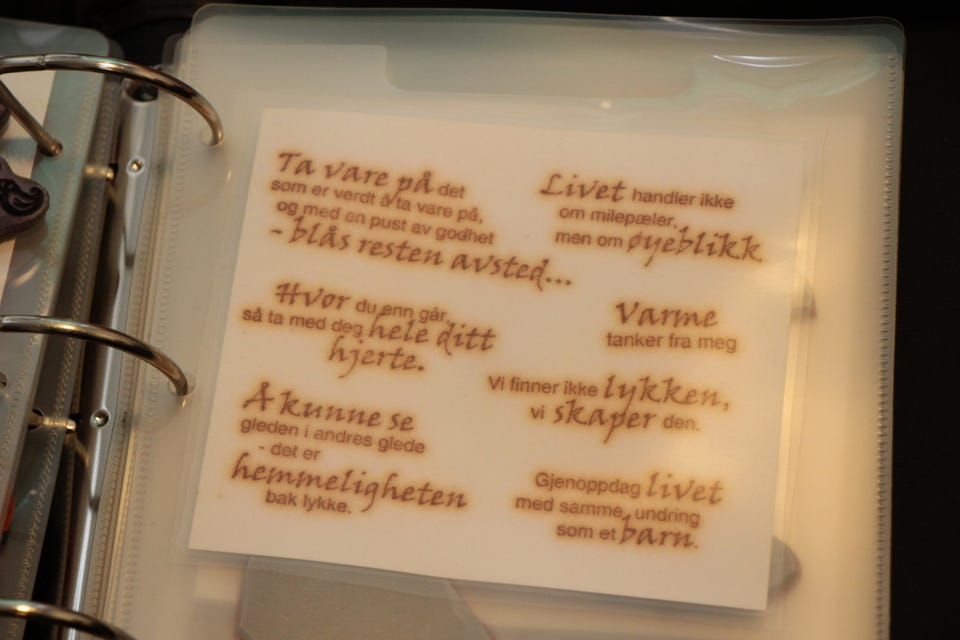 Ta vare på det
som er verdt å ta vare på,
og med en pust av godhet
- blås resten avsted...
Hvor du enn går,
så ta med deg hele ditt
hjerte.
Å kunne se
gleden i andres glede
- det er
hemmeligheten
bak lykke.
Livet handler ikke
om milepæler,
men om øyeblikk.
Varme
tanker fra meg
Vi finner ikke lykken,
vi skaper den.
Gjenoppdag livet
med samme undring
som et barn.